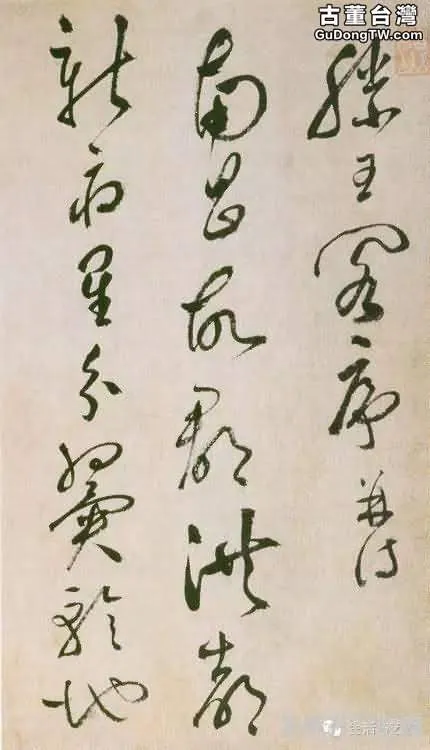 古董台灣
GuDongTW.com
滕王閣序并诗
南昌故郡洪都
新府星分翼軫地